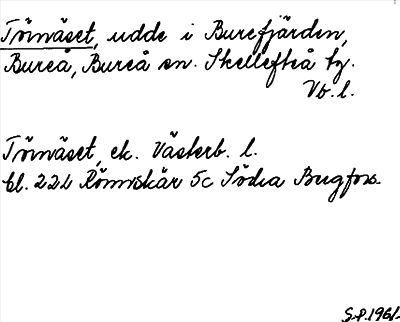 Törnäset, udde i Burefjärden,
Bureå, Bureå sn. Skellefteå tg.
Vb. l.
Törnäset, ek. Västerb. l.
bl. 22L Rönnskär 5c Södra Bergfors.
S.P. 1961.